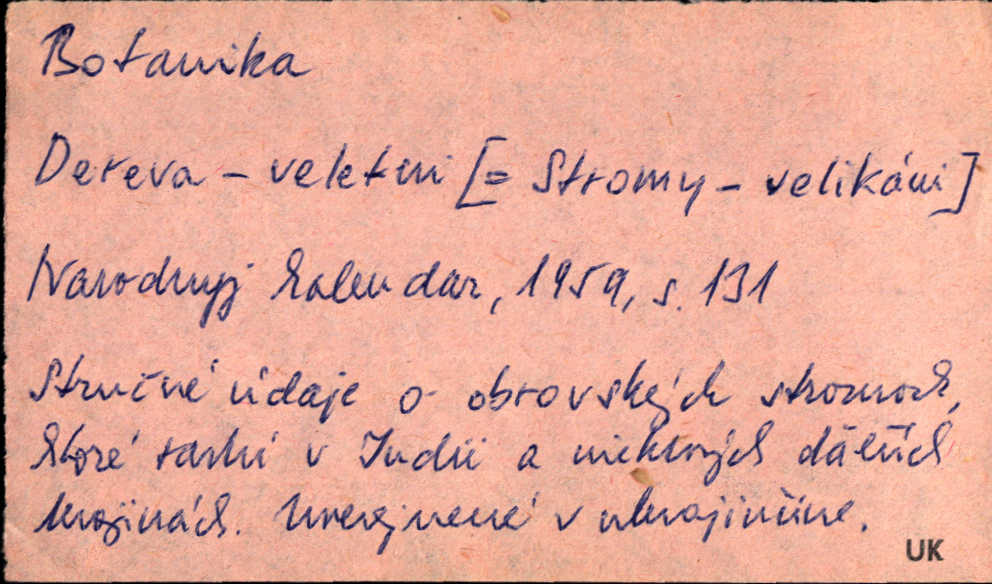 Botanika
Dereva - veletni [= Stromy - velikáni]
Narodnyj kalendar, 1959, s. 131
Stručné údaje o obrovských stromoch,
ktoré rastú v Indii a niektorých ďalších
krajinách. Uverejnené v ukrajinčine.
UK